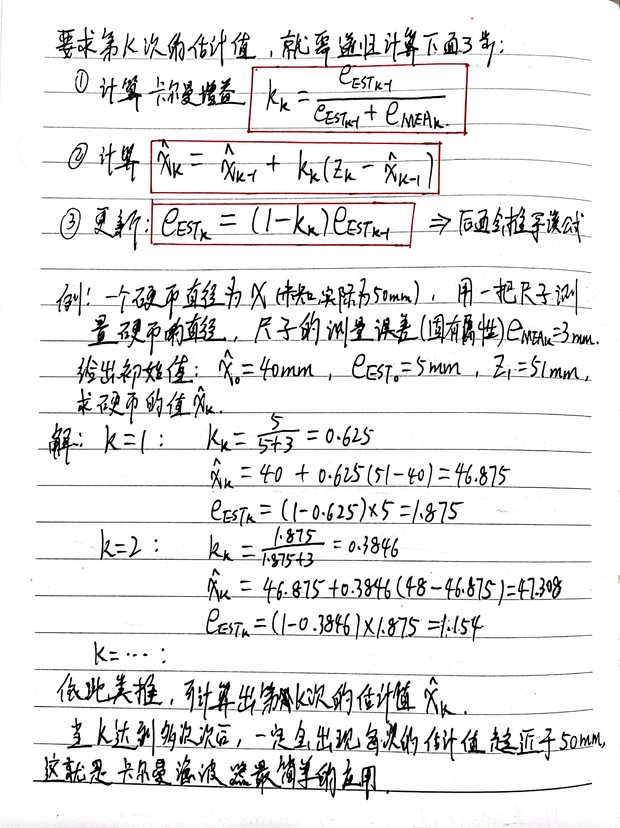 要求第k次的估计值,就需递归计算下面3步:
① 计算卡尔曼增益 kₖ = e_ESTₖ₋₁ / (e_ESTₖ₋₁ + e_MEAₖ).
② 计算 x̂ₖ = x̂ₖ₋₁ + kₖ(zₖ − x̂ₖ₋₁)
③ 更新: e_ESTₖ = (1−kₖ)e_ESTₖ₋₁ ⇒ 后面会推导该公式
例: 一个硬币直径为x(未知,实际为50mm),用一把尺子测
量硬币的直径,尺子的测量误差(固有属性)e_MEAₖ=3mm.
给出初始值: x̂₀=40mm, e_EST₀=5mm, z₁=51mm,
求硬币的值x̂ₖ.
解: k=1: kₖ = 5/(5+3) = 0.625
x̂ₖ = 40 + 0.625(51−40) = 46.875
e_ESTₖ = (1−0.625)×5 = 1.875
k=2: kₖ = 1.875/(1.875+3) = 0.3846
x̂ₖ = 46.875+0.3846(48−46.875)=47.308
e_ESTₖ = (1−0.3846)×1.875 = 1.154
k=⋯:
依此类推,可计算出第k次的估计值 x̂ₖ.
当k达到多次次后,一定会出现每次的估计值趋近于50mm,
这就是卡尔曼滤波器最简单的应用.